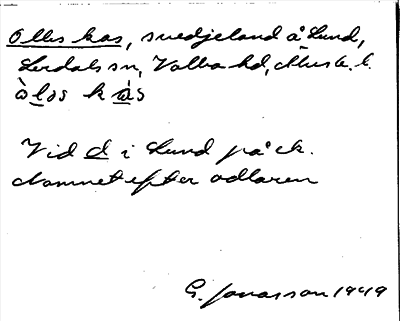 Olles kas, svedjeland å Lund,
Lerdals sn, Valbo hd,
k
Vid d i Lund på ek.
Namnet efter odlaren
G. Jonasson 1949